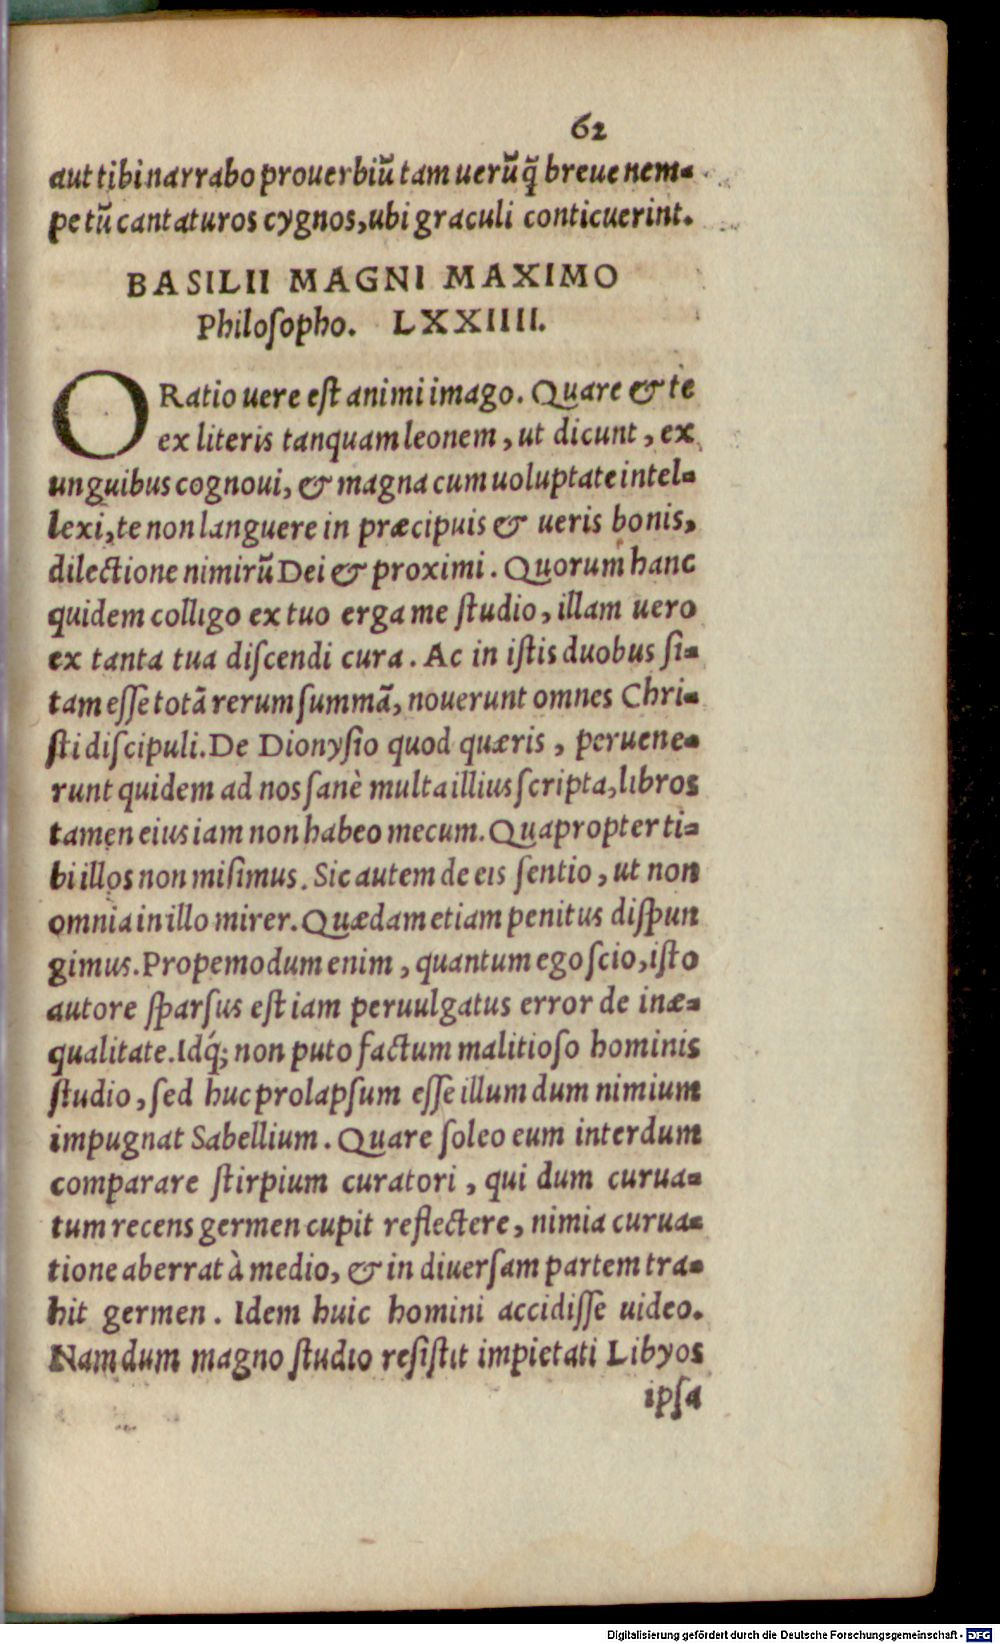 62
aut tibi narrabo prouerbiũ tam uerũ q̃ breue nem-
pe tũ cantaturos cygnos, ubi graculi conticuerint.
BASILII MAGNI MAXIMO
Philoſopho. LXXIIII.
ORatio uere eſt animi imago. Quare & te
ex literis tanquam leonem, ut dicunt, ex
unguibus cognoui, & magna cum uoluptate intel-
lexi, te non languere in præcipuis & ueris bonis,
dilectione nimirũ Dei & proximi. Quorum hanc
quidem colligo ex tuo erga me ſtudio, illam uero
ex tanta tua diſcendi cura. Ac in iſtis duobus ſi-
tam eſſe totã rerum ſummã, nouerunt omnes Chri-
ſti diſcipuli. De Dionyſio quod quæris, peruene-
runt quidem ad nos ſanè multa illius ſcripta, libros
tamen eius iam non habeo mecum. Quapropter ti-
bi illos non miſimus. Sic autem de eis ſentio, ut non
omnia in illo mirer. Quædam etiam penitus diſpun
gimus. Propemodum enim, quantum ego ſcio, iſto
autore ſparſus eſt iam peruulgatus error de inæ-
qualitate. Idq́; non puto factum malitioſo hominis
ſtudio, ſed huc prolapſum eſſe illum dum nimium
impugnat Sabellium. Quare ſoleo eum interdum
comparare ſtirpium curatori, qui dum curua-
tum recens germen cupit reflectere, nimia curua-
tione aberrat à medio, & in diuerſam partem tra-
hit germen. Idem huic homini accidiſſe uideo.
Nam dum magno ſtudio reſiſtit impietati Libyos
ipſa
Digitalisierung gefördert durch die Deutsche Forschungsgemeinschaft - DFG